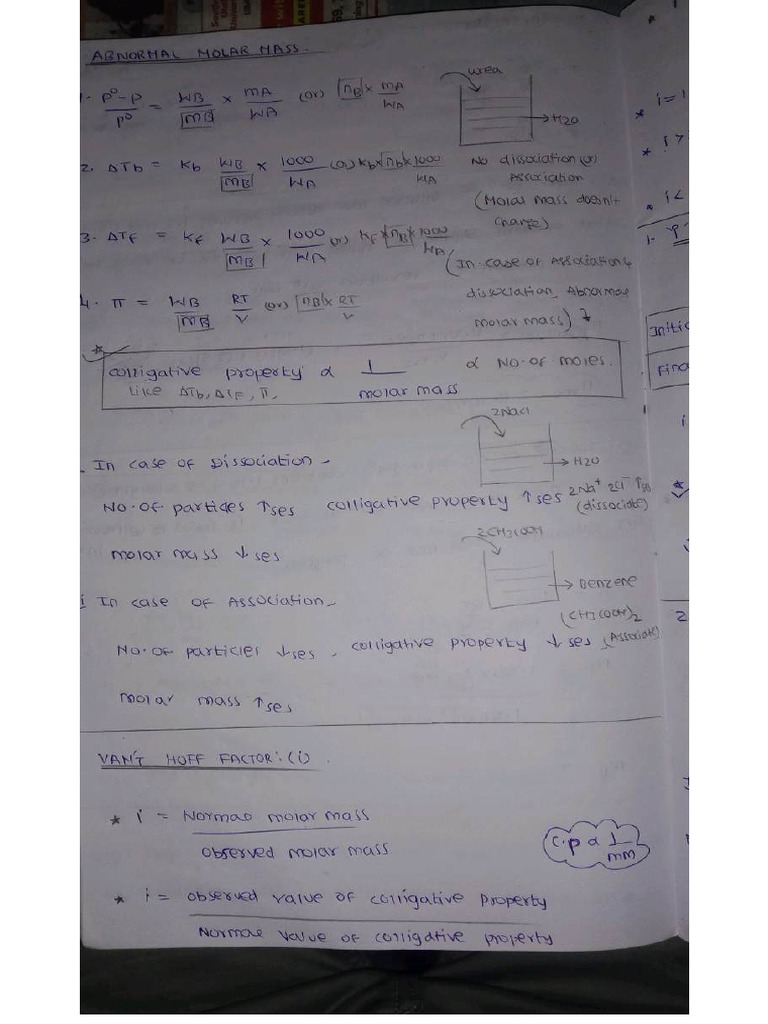 ABNORMAL MOLAR MASS.
1. P⁰-P / P⁰ = WB / MB × MA / WB (or) nB × MA / WA
urea
→ H2O
2. ΔTb = Kb WB / MB × 1000 / WA (or) Kb × nb × 1000 / WA
No dissociation (or) Association
(Molar mass doesn't change)
3. ΔTf = Kf WB / MB × 1000 / WA (or) Kf × nB × 1000 / WA
(In case of Association &
dissociation, Abnormal
molar mass)
4. π = WB / MB RT / V (or) nB × RT / V
colligative property α 1 / molar mass α No. of moles.
Like ΔTb, ΔTf, π,
2NaCl
→ H2O
In case of Dissociation -
No. of particles ↑ses colligative property ↑ses
2Na⁺ 2Cl⁻
(dissociate)
molar mass ↓ses
2CH3COOH
→ Benzene
(CH3COOH)2
(Associate)
i In case of Association -
No. of particles ↓ses, colligative property ↓ses
molar mass ↑ses
VAN'T HOFF FACTOR: (i)
* i = Normal molar mass / observed molar mass
C.p α 1 / mm
* i = observed value of colligative property / Normal value of colligative property
* i=1
* i>
* i<
1.
Initia
Fina
i
2